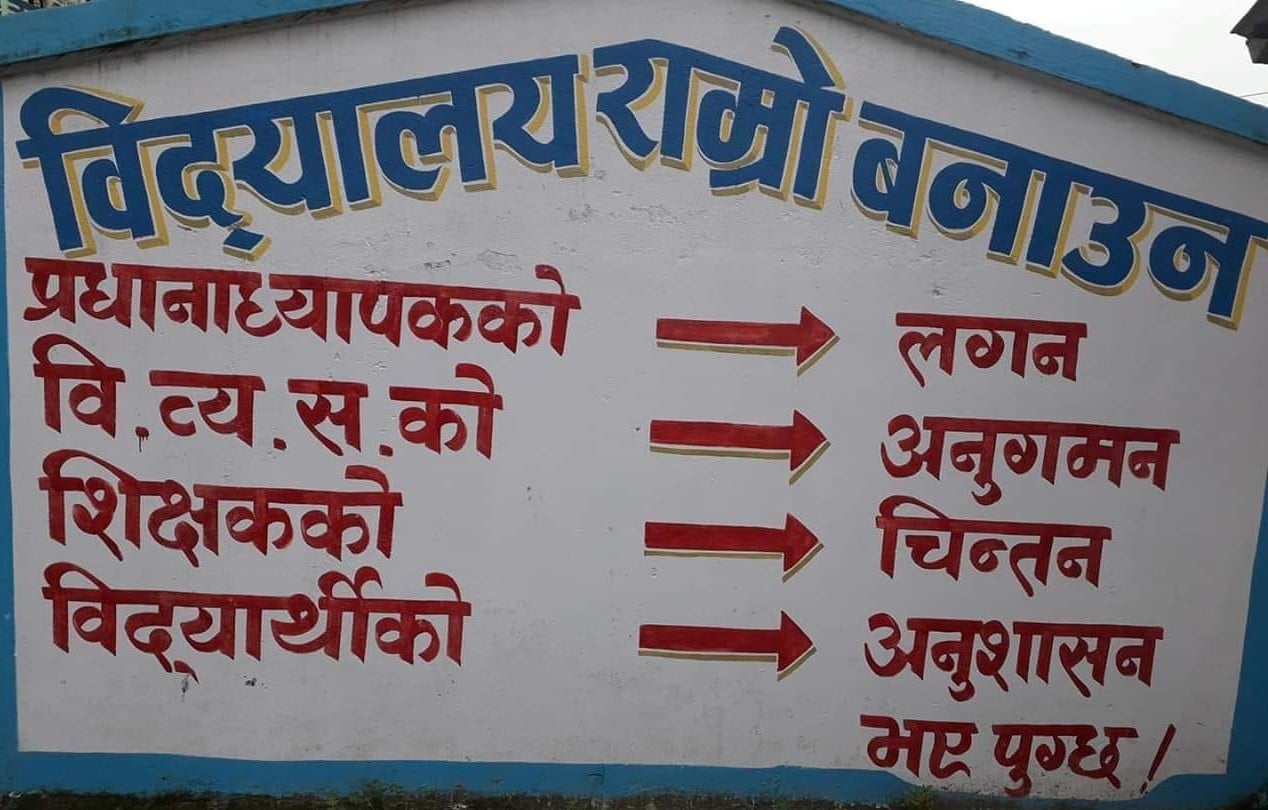 विद्यालय राम्रो बनाउन
प्रधानाध्यापकको → लगन
वि.व्य.स.को → अनुगमन
शिक्षकको → चिन्तन
विद्यार्थीको → अनुशासन
भए पुग्छ !